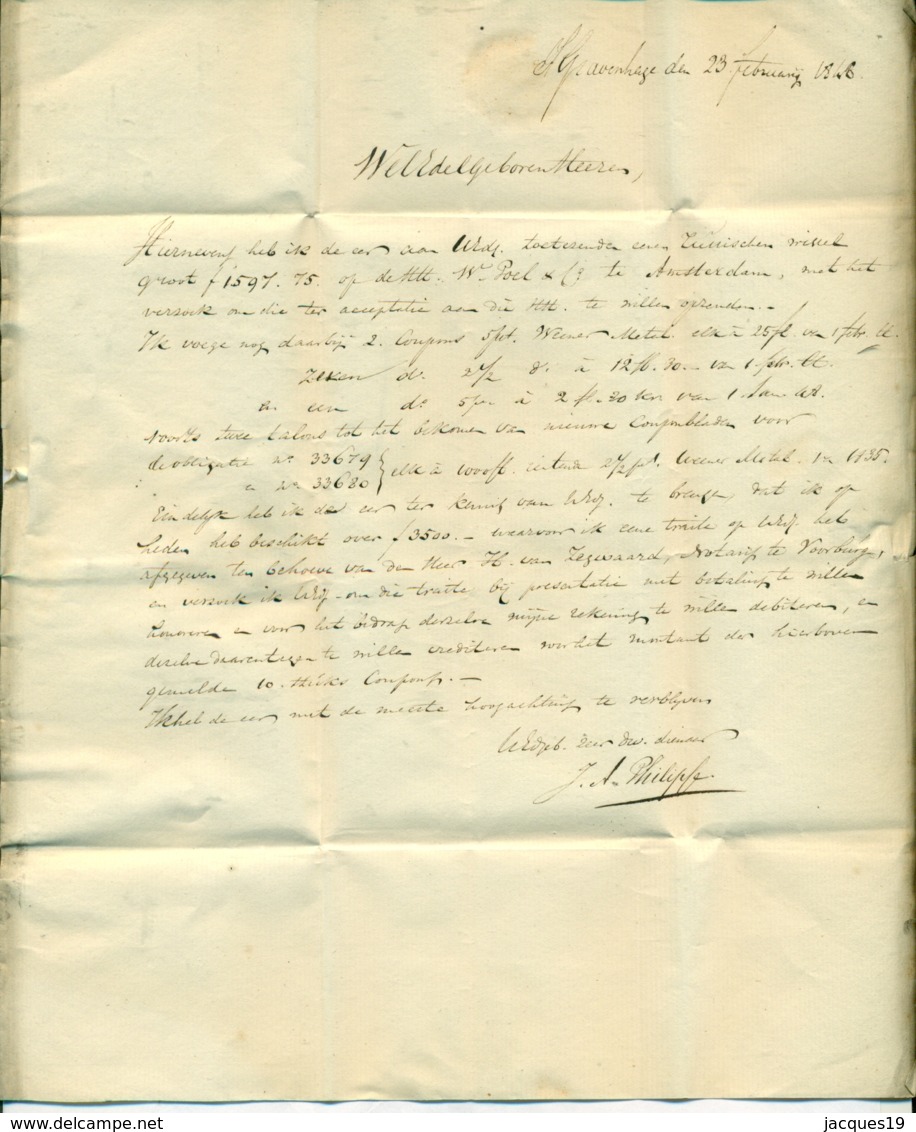 S'Gravenhage den 23 february
WelEdelgeboren Heeren,
Hiernevens heb ik de eer aan UEdg. toetezenden eenen wissel
groot f 1597.75. op de HH. Wm Poel & Co te Amsterdam, met het
verzoek om die ter acceptatie aan die HH. te willen opzenden.-
Ik voege nog daarbij 2. Coupons 5pct. Weener Metal. elk à 25fl. van 1 febr. ll.
zeven do. 2½ do. à 12 fl. 30.- van 1 febr. ll.
en een do. 5pct. à 2 fl. 30 van 1 Jan.
voorts twee talons tot het bekomen van nieuwe Couponbladen voor
de obligatie No. 33679
en No. 33680 elk à 1000 fl. 2½ pct. Weener Metal. van 1835.
Eindelijk heb ik de eer ter kennis van UEdg. te brengen, dat ik op
heden heb beschikt over f 3500.- waarvoor ik eene traite op UEdg. heb
afgegeven ten behoeve van den Heer H. van Zegwaard, Notaris te Voorburg,
en verzoek ik UEdg. om die traite bij presentatie met betaling te willen
honoreren en voor het bedrag derzelve mijne rekening te willen debiteren, en
dezelve daarentegen te willen crediteren voor het montant der hierboven
gemelde 10. stuks Coupons.-
Ik heb de eer met de meeste hoogachting te verblijven
UEdgeb. zeer dw. dienaar
J. A. Philipse.
delcampe.net
jacques19